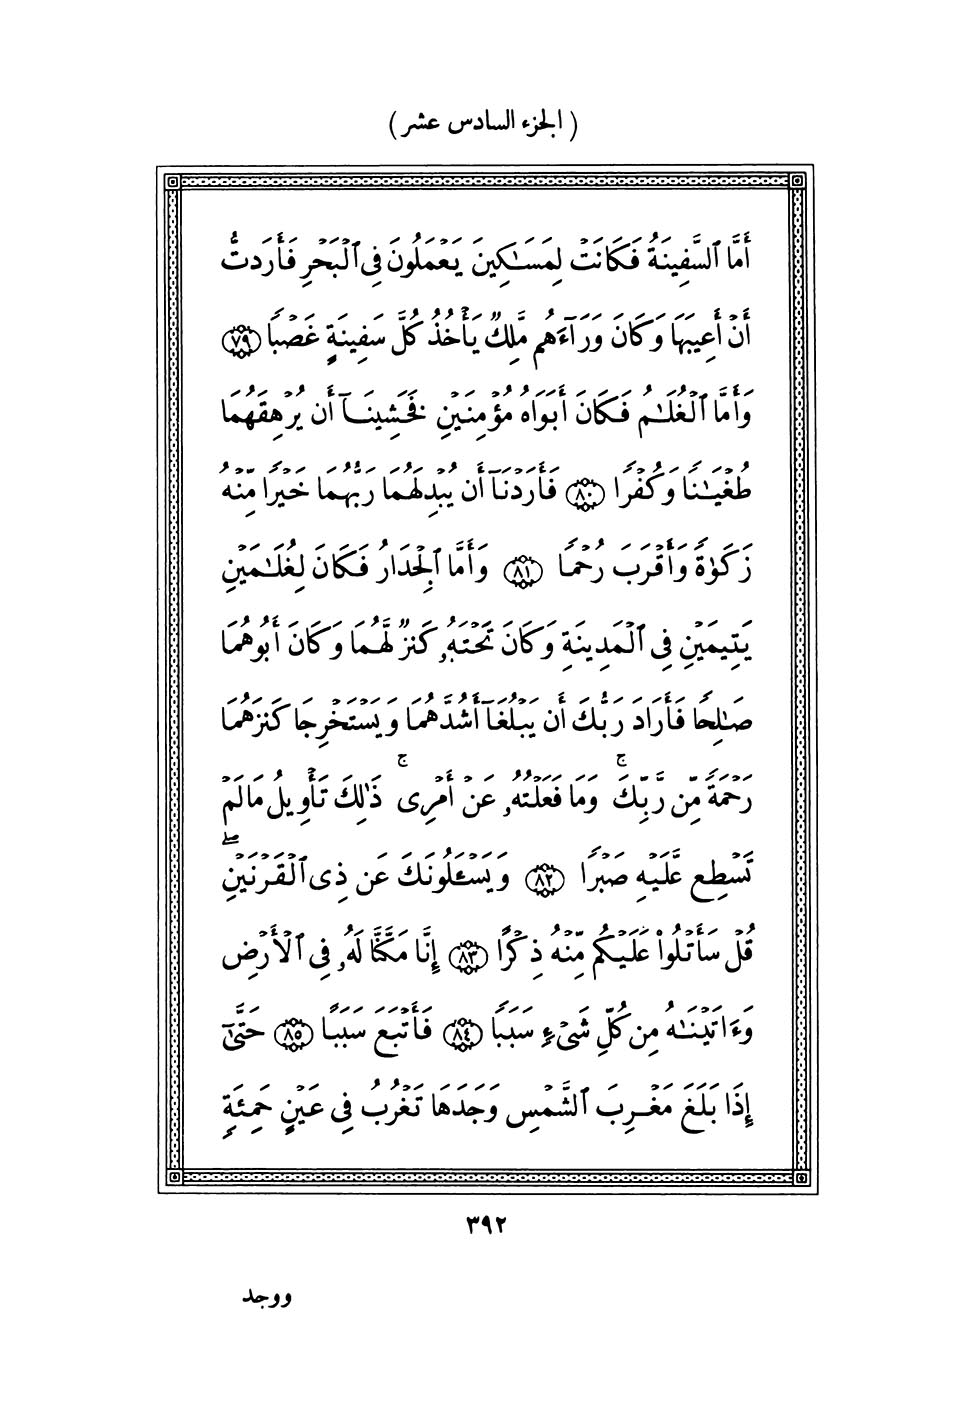 ( الجزء السادس عشر )
أَمَّا ٱلسَّفِينَةُ فَكَانَتْ لِمَسَـٰكِينَ يَعْمَلُونَ فِى ٱلْبَحْرِ فَأَرَدتُّ
أَنْ أَعِيبَهَا وَكَانَ وَرَآءَهُم مَّلِكٌ يَأْخُذُ كُلَّ سَفِينَةٍ غَصْبًا ٧٩
وَأَمَّا ٱلْغُلَـٰمُ فَكَانَ أَبَوَاهُ مُؤْمِنَيْنِ فَخَشِينَآ أَن يُرْهِقَهُمَا
طُغْيَـٰنًا وَكُفْرًا ٨٠ فَأَرَدْنَآ أَن يُبْدِلَهُمَا رَبُّهُمَا خَيْرًا مِّنْهُ
زَكَوٰةً وَأَقْرَبَ رُحْمًا ٨١ وَأَمَّا ٱلْجِدَارُ فَكَانَ لِغُلَـٰمَيْنِ
يَتِيمَيْنِ فِى ٱلْمَدِينَةِ وَكَانَ تَحْتَهُۥ كَنزٌ لَّهُمَا وَكَانَ أَبُوهُمَا
صَـٰلِحًا فَأَرَادَ رَبُّكَ أَن يَبْلُغَآ أَشُدَّهُمَا وَيَسْتَخْرِجَا كَنزَهُمَا
رَحْمَةً مِّن رَّبِّكَ ۚ وَمَا فَعَلْتُهُۥ عَنْ أَمْرِى ۚ ذَٰلِكَ تَأْوِيلُ مَا لَمْ
تَسْطِع عَّلَيْهِ صَبْرًا ٨٢ وَيَسْـَٔلُونَكَ عَن ذِى ٱلْقَرْنَيْنِ ۖ
قُلْ سَأَتْلُوا۟ عَلَيْكُم مِّنْهُ ذِكْرًا ٨٣ إِنَّا مَكَّنَّا لَهُۥ فِى ٱلْأَرْضِ
وَءَاتَيْنَـٰهُ مِن كُلِّ شَىْءٍ سَبَبًا ٨٤ فَأَتْبَعَ سَبَبًا ٨٥ حَتَّىٰٓ
إِذَا بَلَغَ مَغْرِبَ ٱلشَّمْسِ وَجَدَهَا تَغْرُبُ فِى عَيْنٍ حَمِئَةٍ
٣٩٢
ووجد